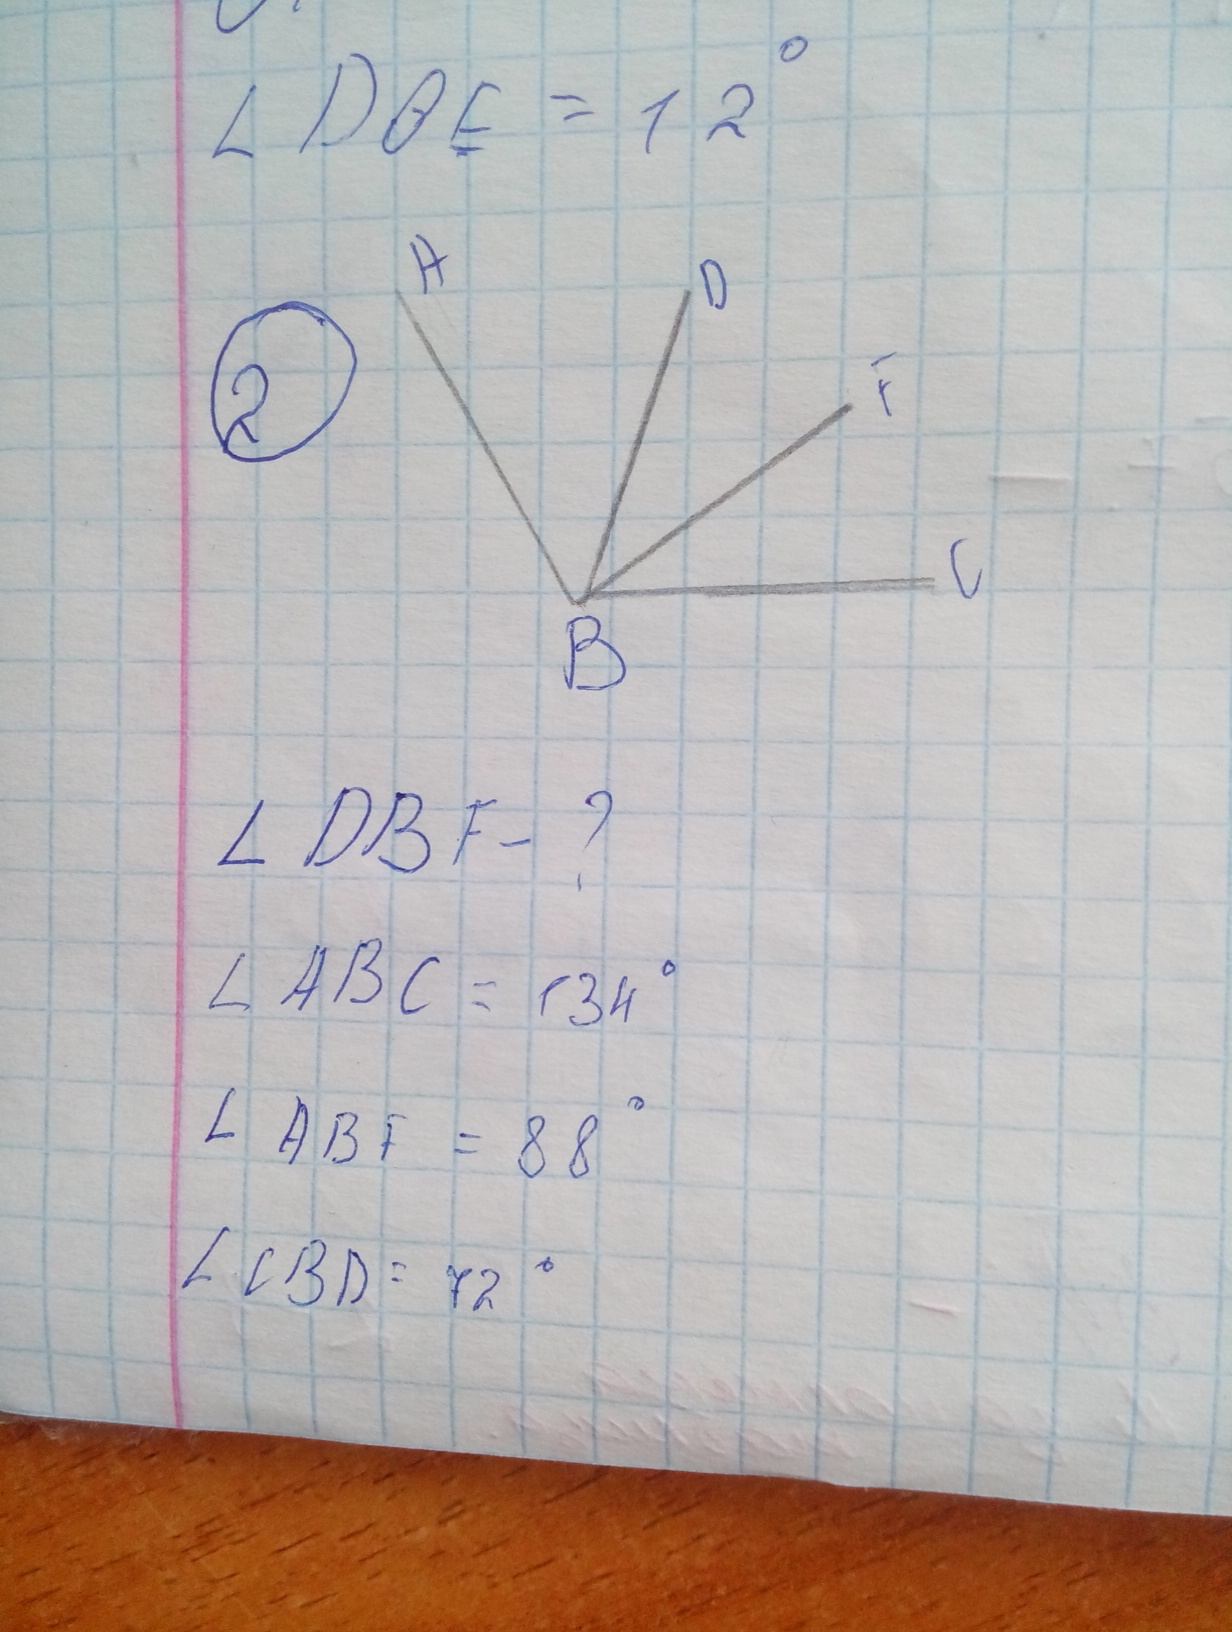 ∠DBE = 12°
A
D
F
2
C
B
∠DBF - ?
∠ABC = 134°
∠ABF = 88°
∠CBD = 72°